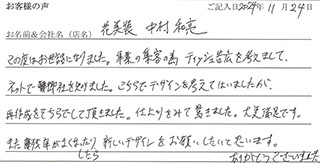 お客様の声
ご記入日2024年 11月24日
お名前&会社名(店名) 花美装 中村 和亮
この度はお世話になりました。事業の集客の為 ティッシュ告広を考えまして、
ネットで 御社を知りました。こちらでデザインを考えてはいましたが、
再作成をそちらでして頂きました。仕上りをみて驚きました。大変満足です。
また 在庫がなくなったり したら 新しいデザインを お願いしたいと思います。
ありがとうございました